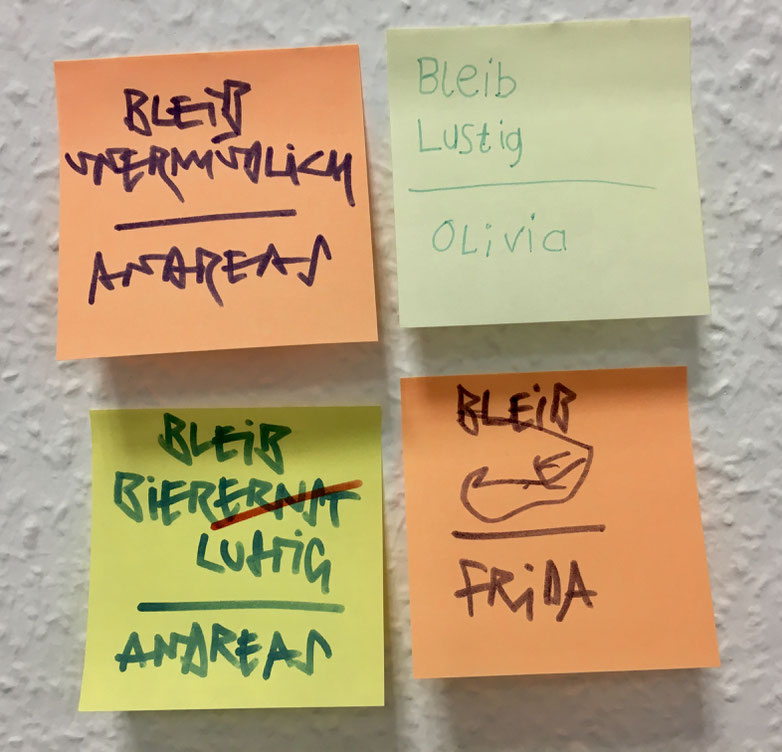 BLEiB
UNERMUDLiCH
ANDREAS
Bleib
Lustig
OLivia
BLEiB
BiERERNST
LUSTiG
ANDREAS
BLEiB
FRiDA